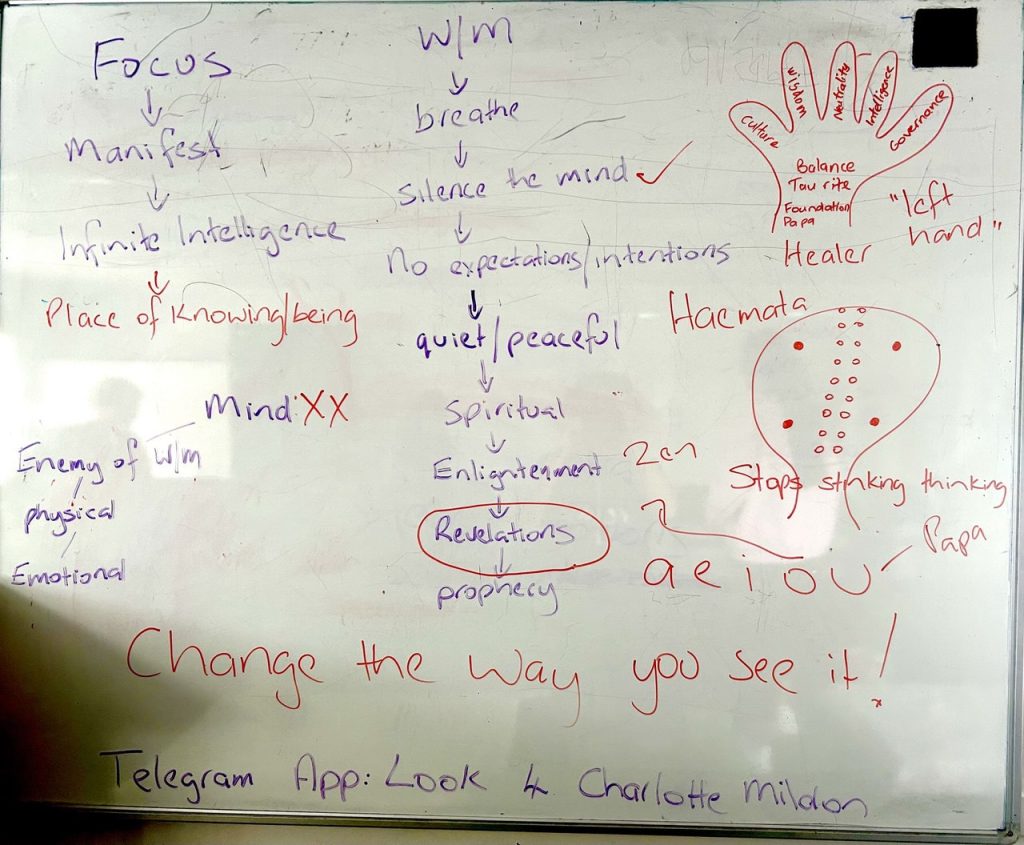 Focus
Manifest
Infinite Intelligence
Place of Knowing/being
Mind: XX
Enemy of W/m
physical
Emotional
W/m
breathe
Silence the mind
No expectations/intentions
quiet/peaceful
Spiritual
Enlightenment
Revelations
prophecy
Culture
Wisdom
Neutrality
Intelligence
Governance
Balance
Tau rite
Foundation
Papa
"left
hand"
Healer
Haemata
Stops stinking thinking
a e i o u
Papa
Change the way you see it!
Telegram App: Look 4 Charlotte Mildon